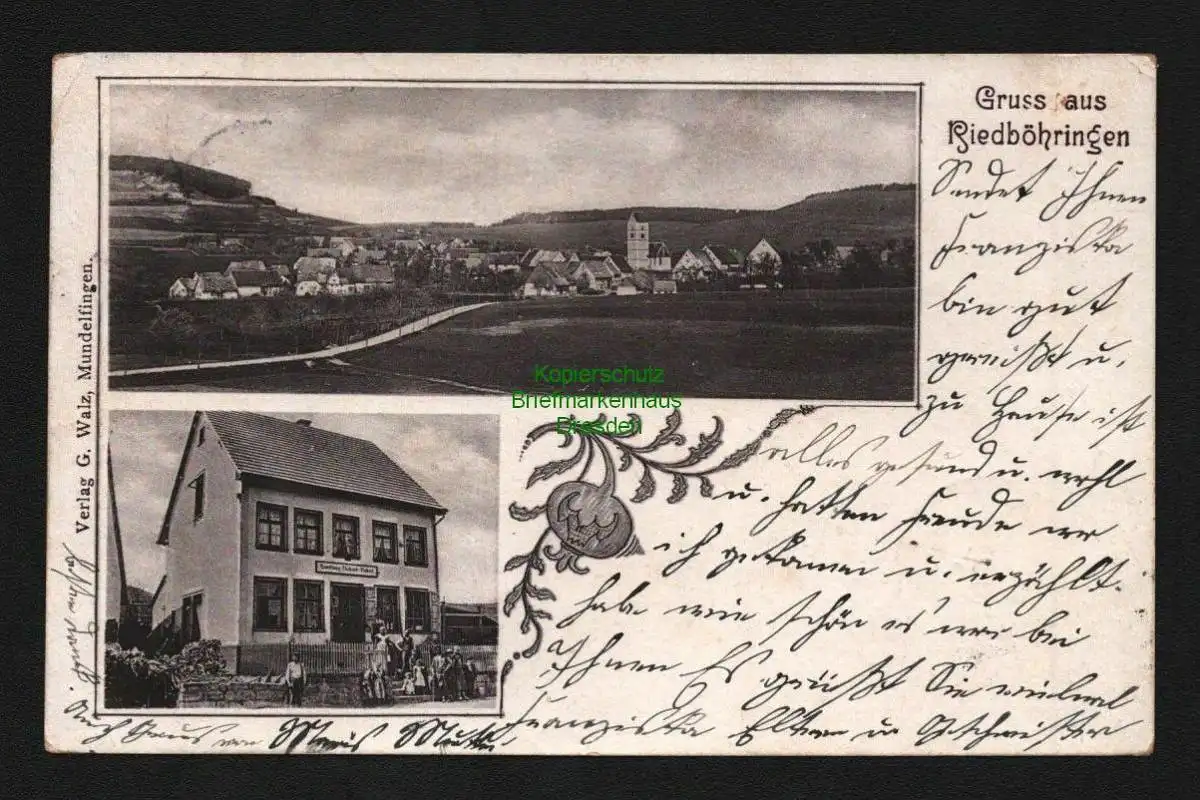 Gruss aus
Riedböhringen
Sendet Ihnen
Franziska
bin gut
gereist u.
zu Hause ist
alles gesund u. wohl
u. hatten Freude wo
ich gekommen u. erzählt
habe wie schön es war bei
Ihnen Es grüßt Sie vielmal
Franziska Eltern u Geschwister
Auch Gruss von
Verlag G. Walz, Mundelfingen.
Kopierschutz
Briefmarkenhaus
Dresden